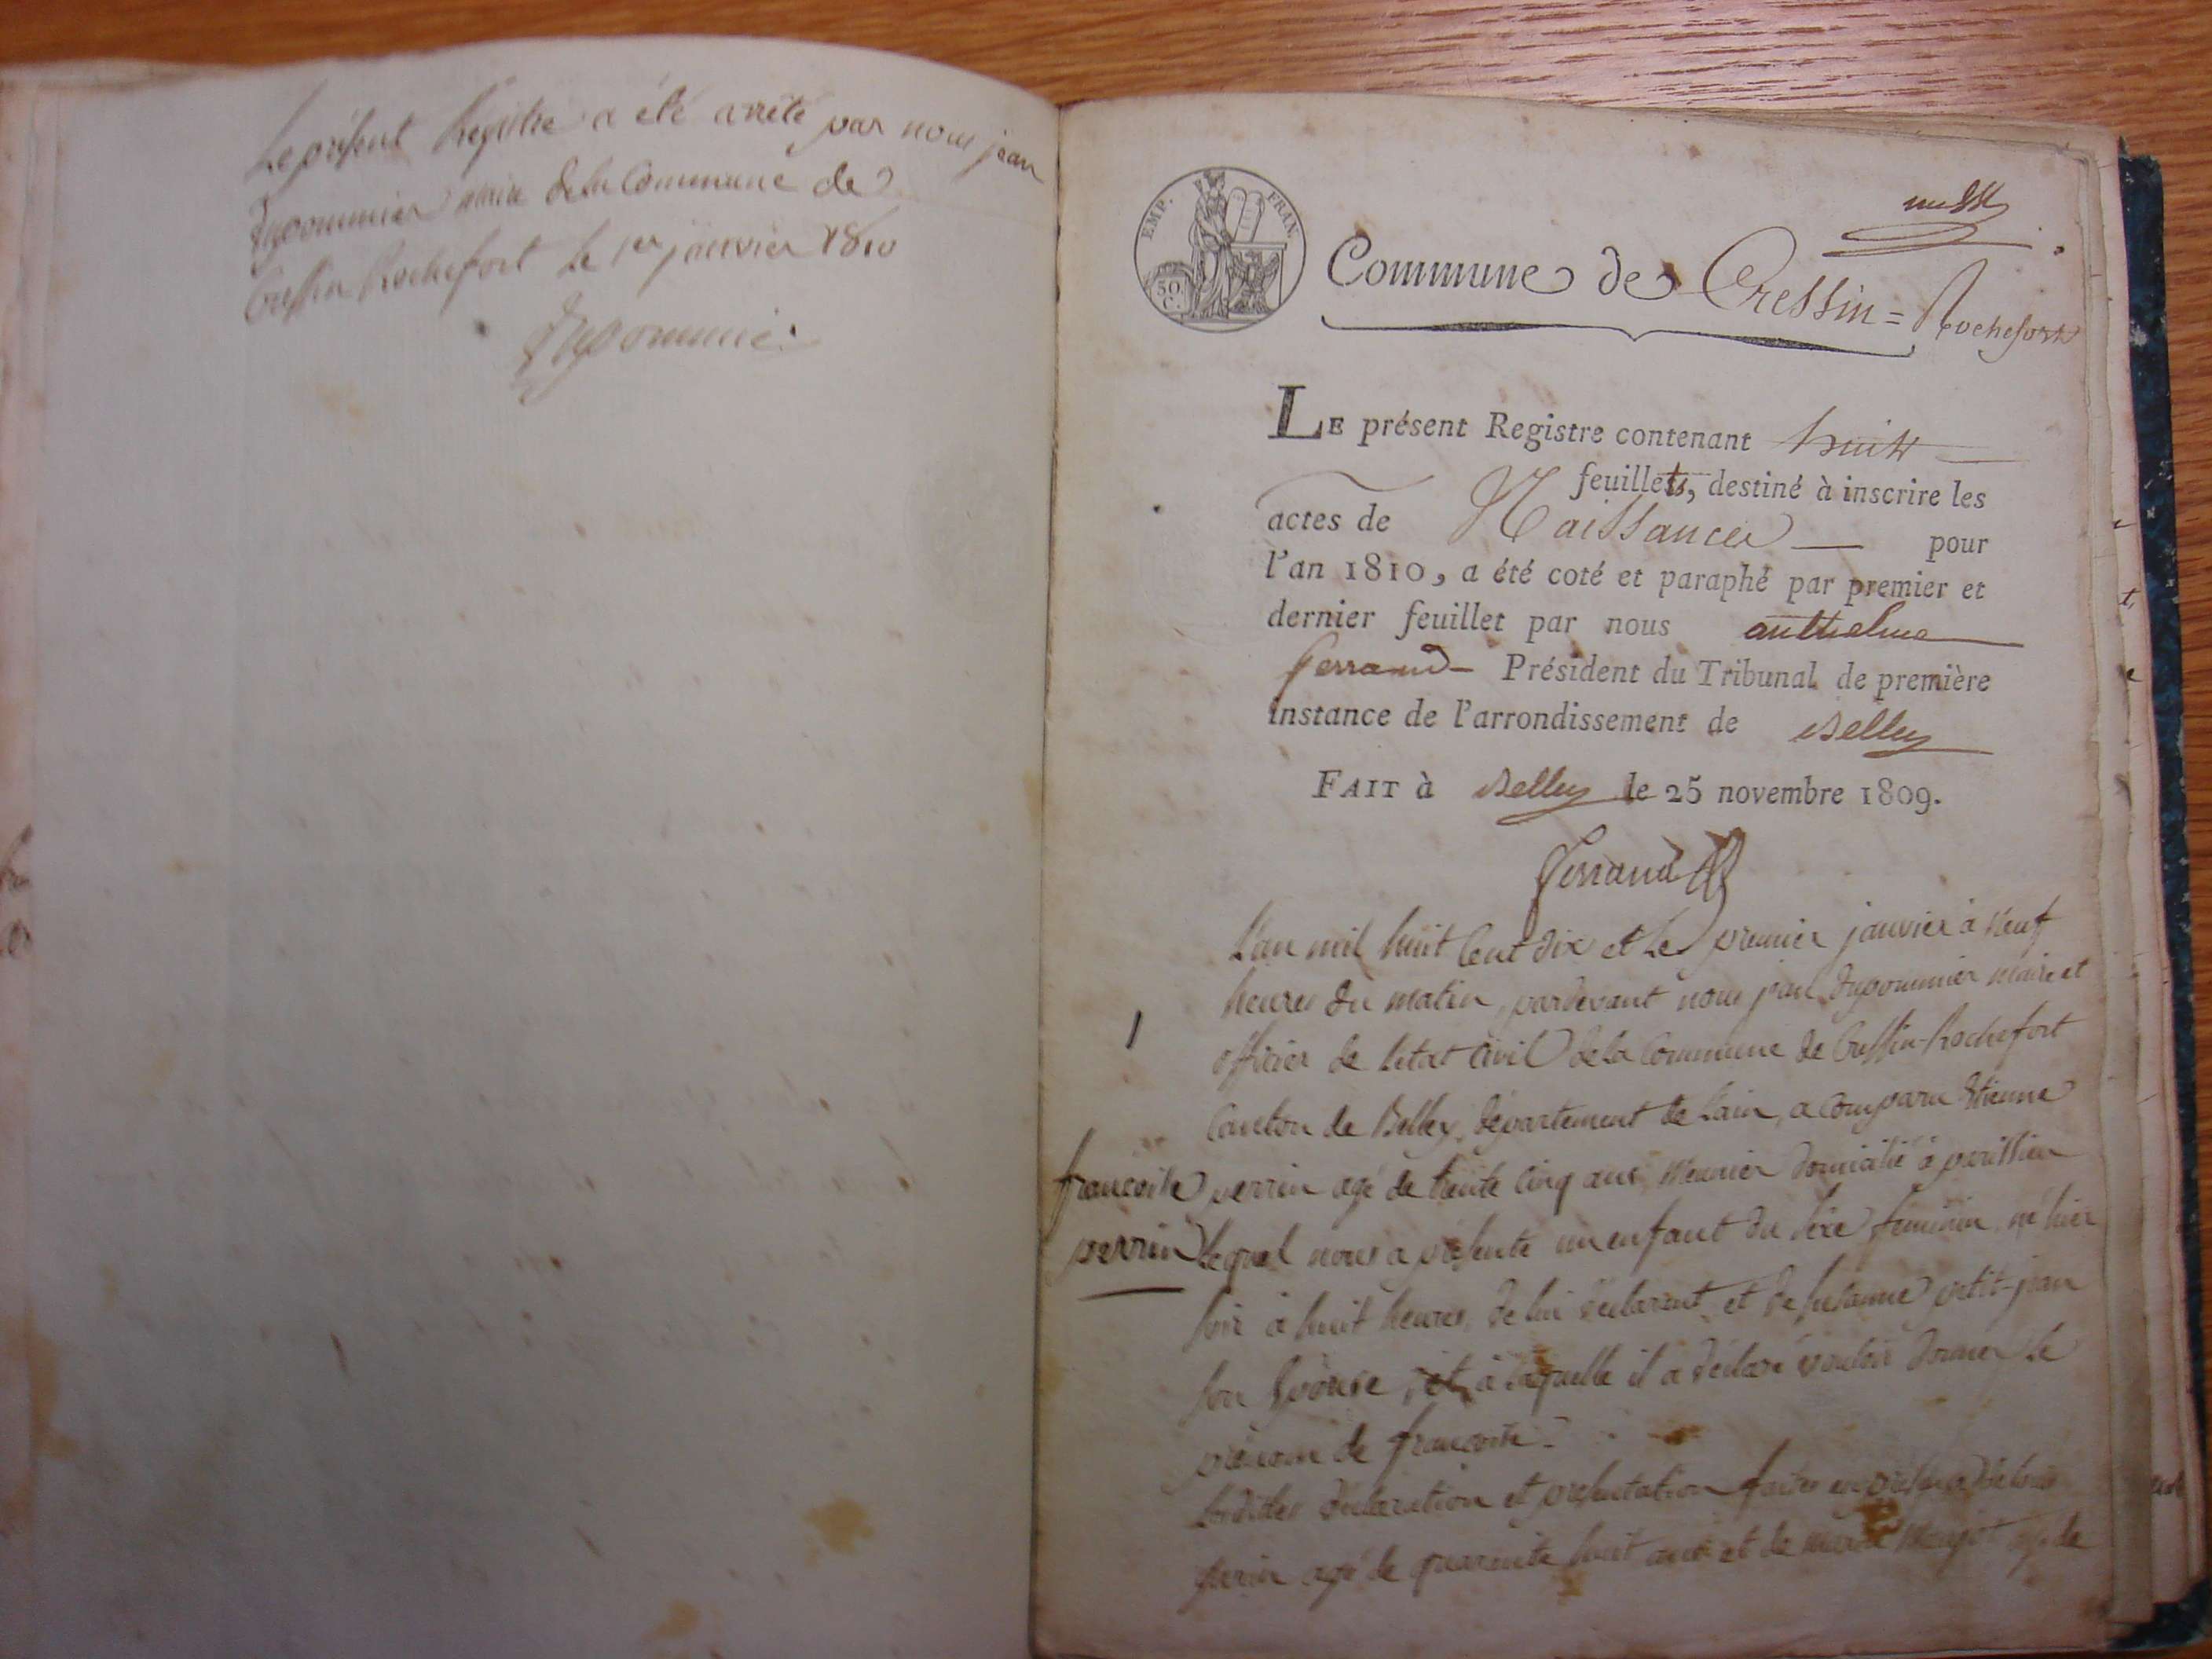 Le présent Registre a été arrêté par nous jean
Dupommier maire de la Commune de
Cressin Rochefort le 1er janvier 1810
Dupommier
EMP. FRAN.
50 C.
Commune de Cressin = Rochefort
LE présent Registre contenant huit
feuillets, destiné à inscrire les
actes de Naissances pour
l'an 1810, a été coté et paraphé par premier et
dernier feuillet par nous anthelme
ferrand Président du Tribunal de première
instance de l'arrondissement de Belley
FAIT à Belley le 25 novembre 1809.
ferrand
L'an mil huit Cent dix et le premier janvier à neuf
heures du matin, pardevant nous jean Dupommier maire et
1
officier de l'etat Civil de la Commune de Cressin-Rochefort
Canton de Belley, département de L'ain, a Comparu Etienne
françoise
perrin agé de trente Cinq ans, Meunier domicilié à parissieu
perrin
Lequel nous a présenté un enfant du sexe féminin, né hier
soir à huit heures, de lui déclarant, et de susanne petit-jean
son Epouse, et à laquelle il a déclaré vouloir donner le
prénom de françoise.
Lesdites déclaration et présentation faites en présence de
perrin agé de quarante huit ans et de agé de